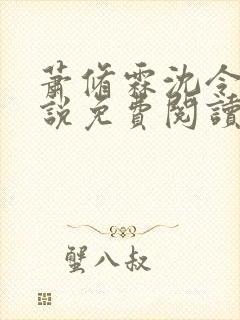 蕭脩霖沈令
說免費閱讀
蟹八叔